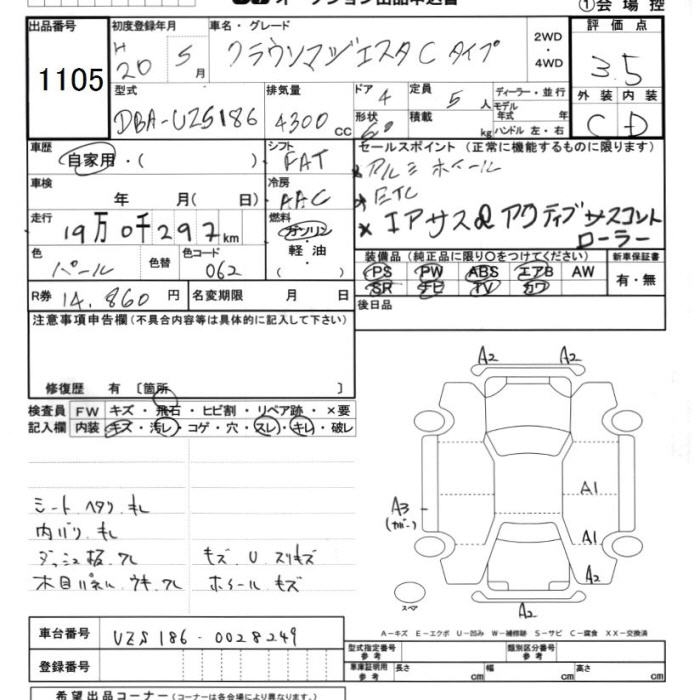 オークション出品申込書
①会場控
出品番号 1105
初度登録年月 H20 5月
車名・グレード クラウンマジェスタ Cタイプ
2WD・4WD
評価点 3.5
型式 DBA-UZS186
排気量 4300 cc
ドア 4 定員 5人
形状 積載 kg
ディーラー・並行
モデル年式 年
ハンドル 左・右
外装 内装
C D
車歴 自家用・( )
シフト FAT
セールスポイント (正常に機能するものに限ります)
* アルミホイール
* ETC
* エアサス & アクティブサスコントローラー
車検 年 月( 日)
冷房 AAC
走行 19万0千297km
燃料 ガソリン・軽油・( )
色 パール 色替 色コード 062
装備品 (純正品に限り〇をつけてください)
PS PW ABS エアB AW
SR ナビ TV カワ
新車保証書 有・無
R券 14,860円 名変期限 月 日
後日品
注意事項申告欄 (不具合内容等は具体的に記入して下さい)
修復歴 有 [箇所 ]
検査員記入欄
FW キズ・飛石・ヒビ割・リペア跡・×要
内装 キズ・汚レ・コゲ・穴・スレ・キレ・破レ
シート ヘタリ キレ
内バリ キレ
ダッシュ板 ワレ
キズ U スリキズ
木目パネル ウキ ワレ
ホイール キズ
A2 A2
A1
A3
(カバー)
A1
A2
スペア
A2
A-キズ E-エクボ U-凹み W-補修跡 S-サビ C-腐食 XX-交換済
車台番号 UZS186-0028249
登録番号
型式指定番号 参考
類別区分番号 参考
車庫証明用 参考 長さ cm 幅 cm 高さ cm
希望出品コーナー (コーナーは各会場により異なります。)